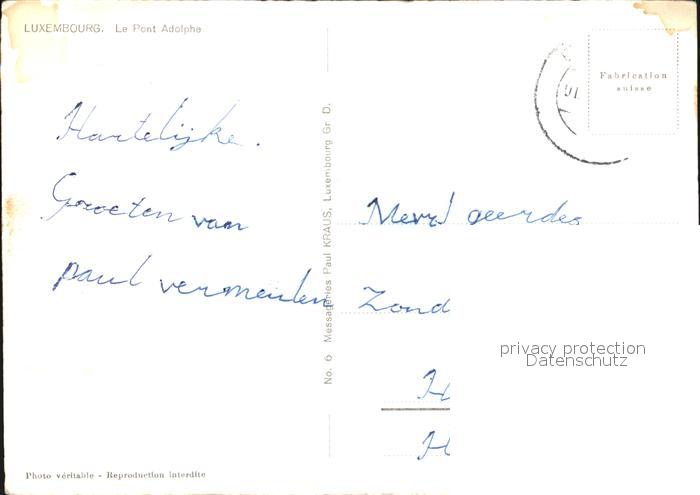 LUXEMBOURG. Le Pont Adolphe
Fabrication
suisse
Hartelijke.
Groeten van
paul vermeulen
No. 6 Messageries Paul KRAUS, Luxembourg Gr D.
Mevr
Zond
H
H
privacy protection
Datenschutz
Photo véritable - Reproduction interdite